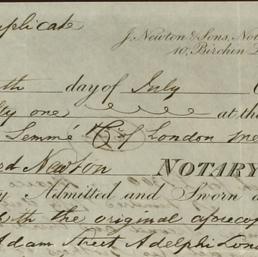 uplicate
J. Newton & Sons, Not
10, Birchin L
th day of July
ty one at the
Semmé of London me
rd Newton NOTARY
y Admitted and Sworn
th the original aforecop
Adam Street Adelphi Lon